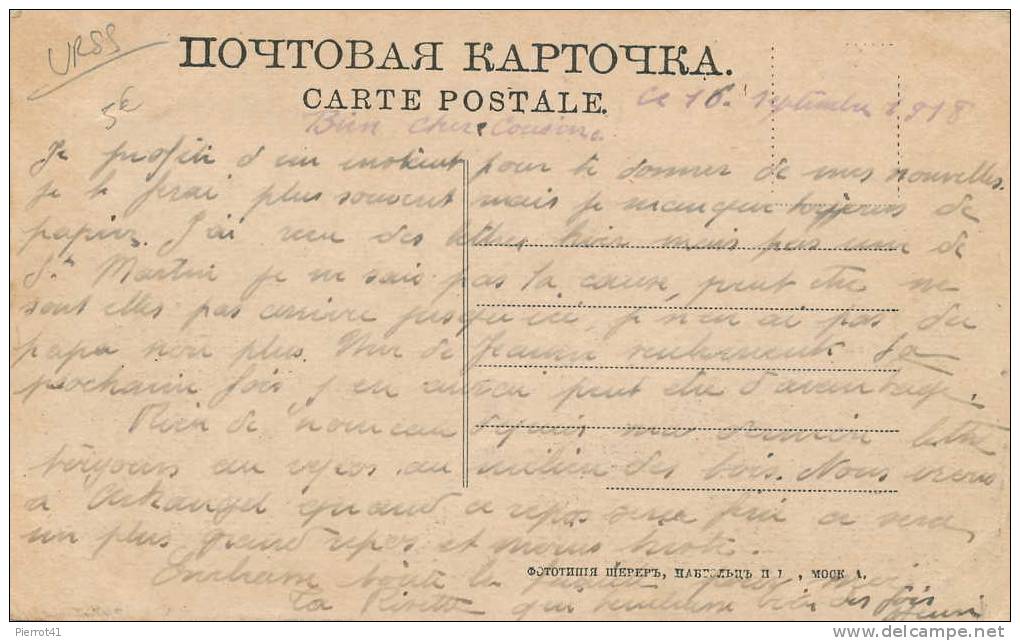 URSS
5€
ПОЧТОВАЯ КАРТОЧКА.
CARTE POSTALE.
Ce 16 septembre 1918
Bien cher Cousin
Je profite d'un instant pour te donner de mes nouvelles.
je le ferai plus souvent mais je manque toujours de
papier. J'ai reçu des lettres hier mais pas une de
St Martin je ne sais pas la cause, peut etre ne
sont elles pas arrivé jusqu'ici, je n'en ai pas du
papa non plus. de seulement La
prochaine fois j'en aurai peut etre d'avantage.
Rien de nouveau depuis ma dernière lettre
toujours au repos au milieu des bois. Nous irons
à Arkangel quand ce repos sera fini ce sera
un plus grand repos et moins triste.
ФОТОТИПІЯ ШЕРЕРЪ, НАБГОЛЬЦЪ И МОСКВА.
Embrasse toute la famille
Ta qui bien des fois
Henri
Pierrot41
www.delcampe.net